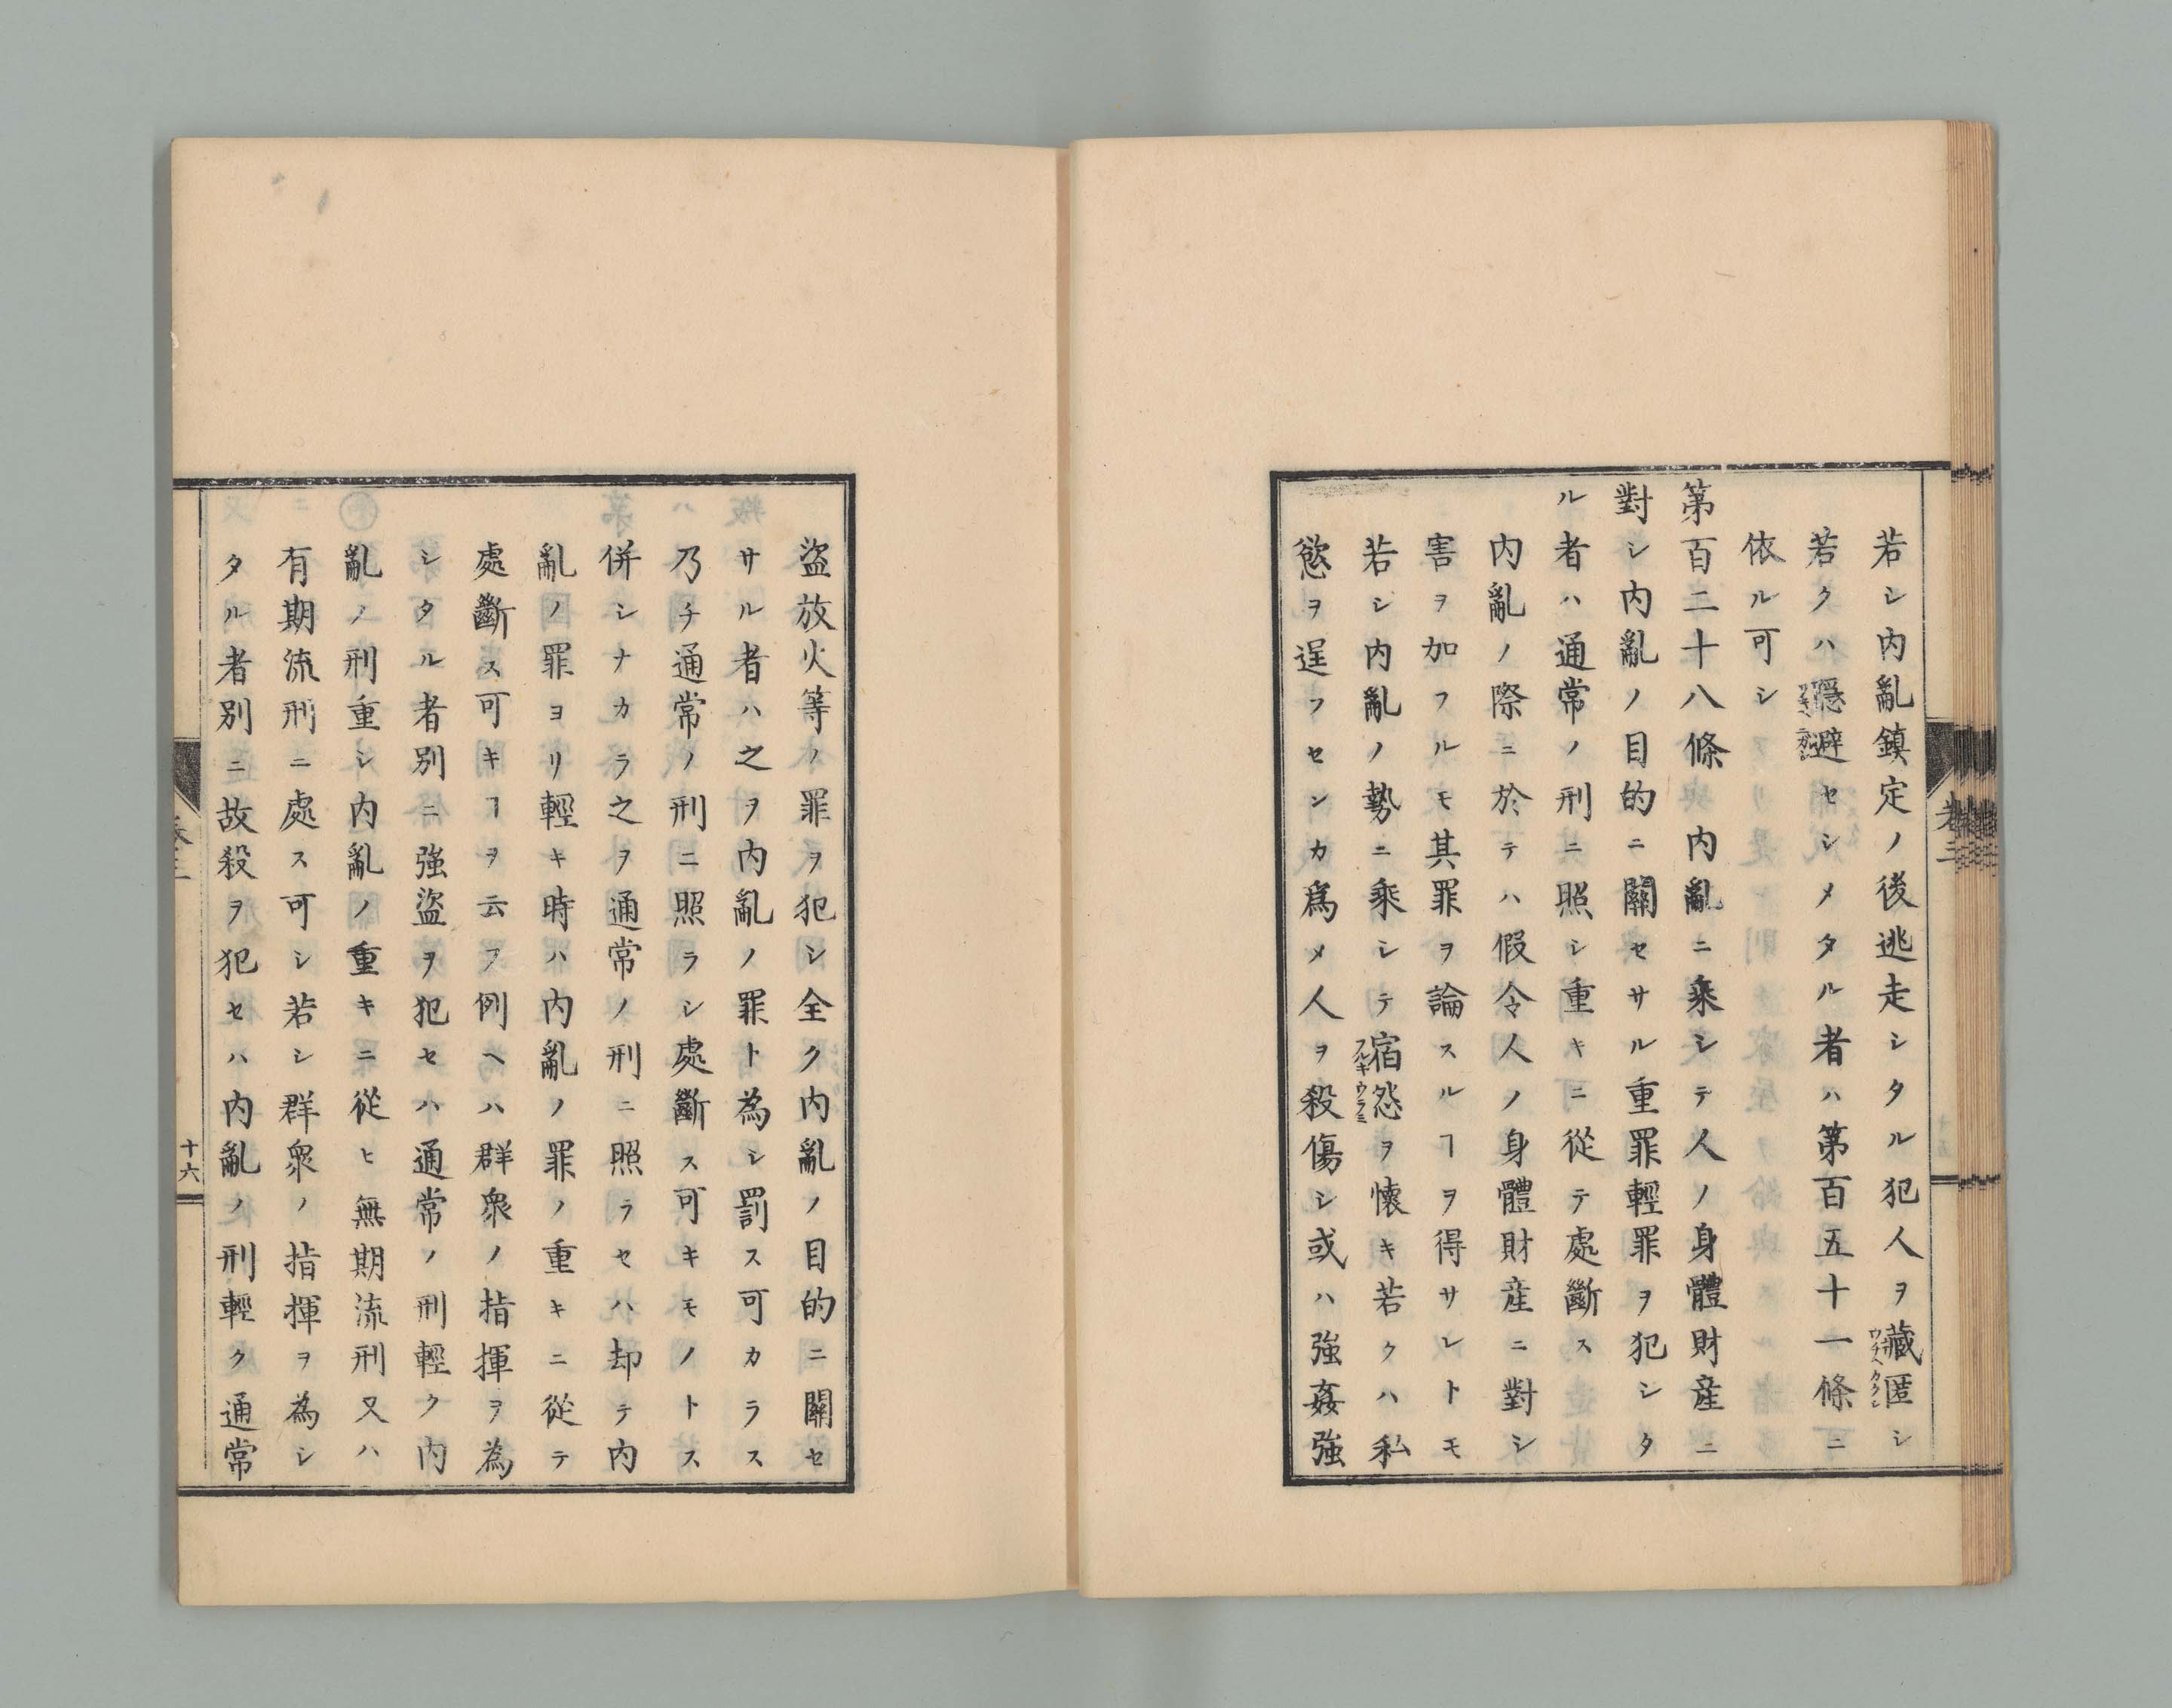 若シ内亂鎮定ノ後逃走シタル犯人ヲ藏匿シ
若クハ隱避セシメタル者ハ第百五十一條ニ
依ル可シ
第百二十八條 内亂ニ乘シテ人ノ身體財産ニ
對シ内亂ノ目的ニ關セサル重罪輕罪ヲ犯シタ
ル者ハ通常ノ刑ニ照シ重キニ從テ處斷ス
内亂ノ際ニ於テハ假令人ノ身體財産ニ對シ
害ヲ加フルモ其罪ヲ論スルヿヲ得サレトモ
若シ内亂ノ勢ニ乘シテ宿怨ヲ懷キ若クハ私
慾ヲ逞フセンカ爲メ人ヲ殺傷シ或ハ強姦強
盜放火等ノ罪ヲ犯シ全ク内亂ノ目的ニ關セ
サル者ハ之ヲ内亂ノ罪ト為シ罰ス可カラス
乃チ通常ノ刑ニ照ラシ處斷ス可キモノトス
併シナカラ之ヲ通常ノ刑ニ照ラセハ却テ内
亂ノ罪ヨリ輕キ時ハ内亂ノ罪ノ重キニ從テ
處斷ス可キヿヲ云フ例ヘハ群衆ノ指揮ヲ為
シタル者別ニ強盜ヲ犯セハ通常ノ刑輕ク内
亂ノ刑重シ内亂ノ重キニ從ヒ無期流刑又ハ
有期流刑ニ處ス可シ若シ群衆ノ指揮ヲ為シ
タル者別ニ故殺ヲ犯セハ内亂ノ刑輕ク通常
十六